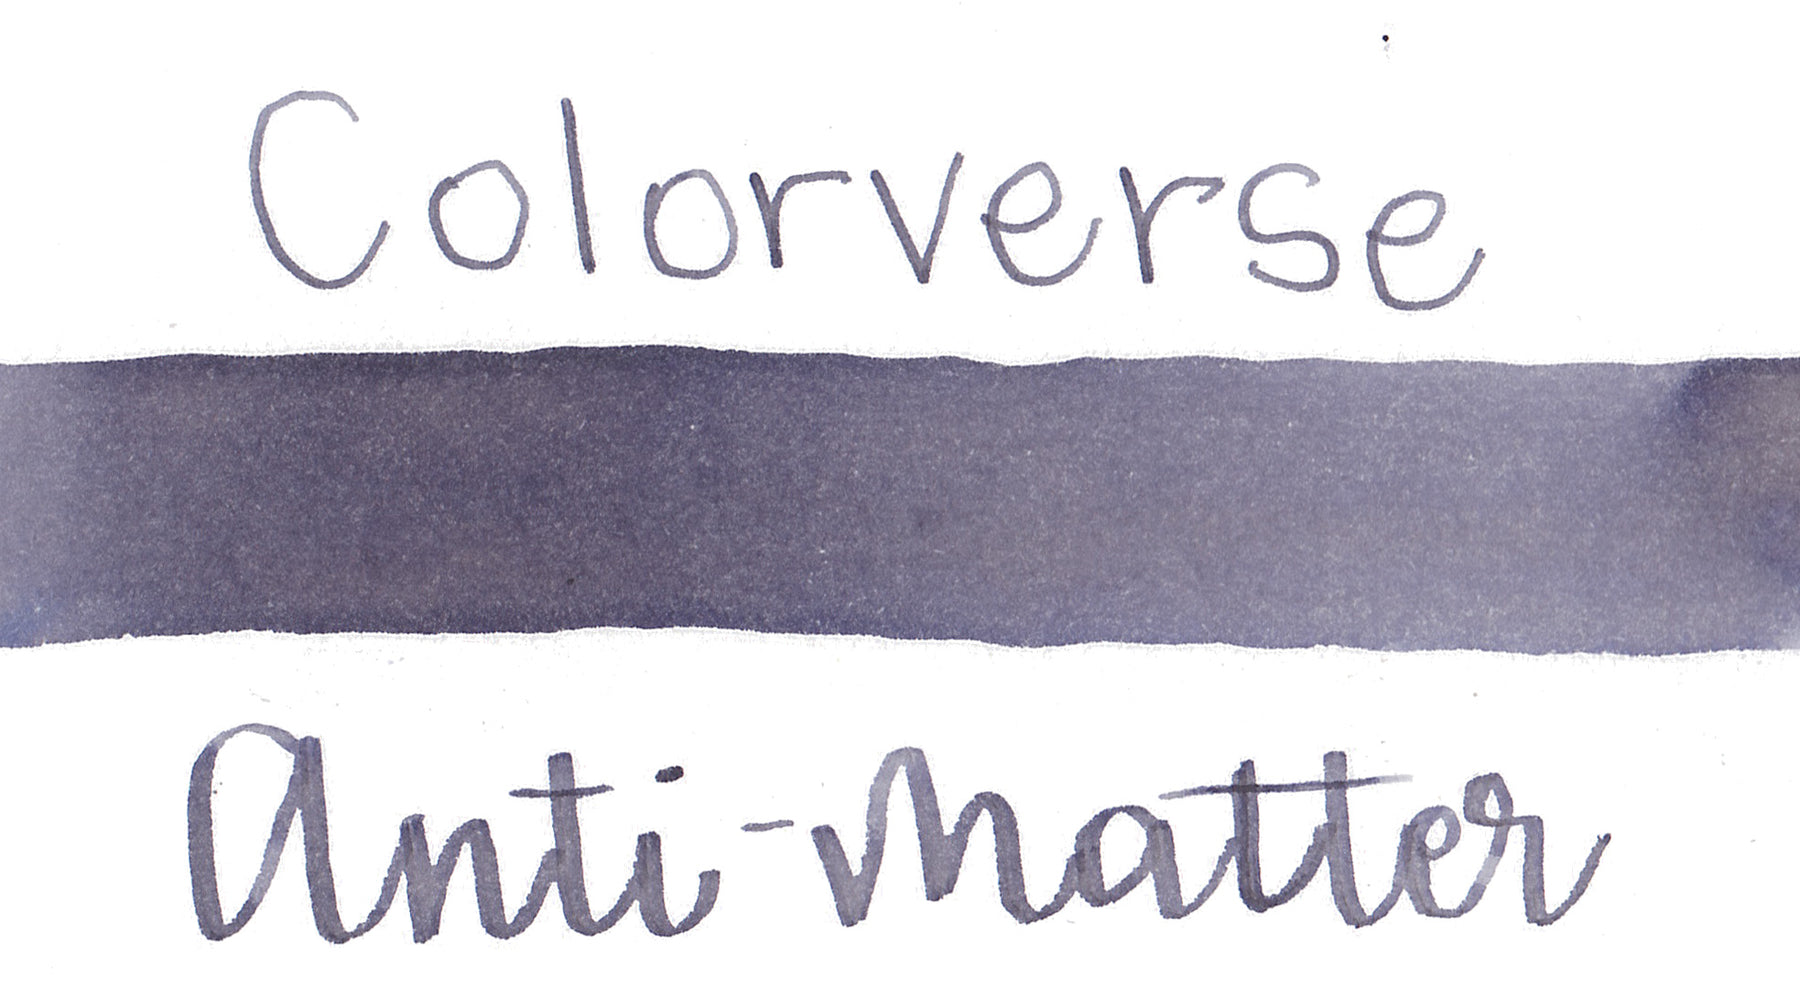 Colorverse
Anti-Matter